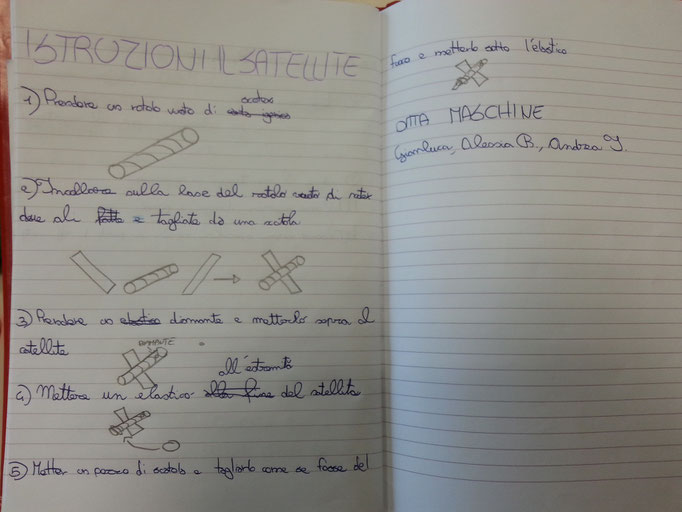 ISTRUZIONI IL SATELLITE
1) Prendere un rotolo vuoto di scotex
2) Incollare sulla base del rotolo vuoto di
due ali fatte e tagliate da una scatola
3) Prendere un elastico diamante e metterlo sopra al
satellite
DIAMANTE
all'estremità
4) Mettere un elastico alla fine del satellite
5) Metter un pezzo di scatola e tagliarlo come se fosse del
fuoco e metterlo sotto l'elastico
DITTA MASCHINE
Gianluca, Alessia B., Andrea